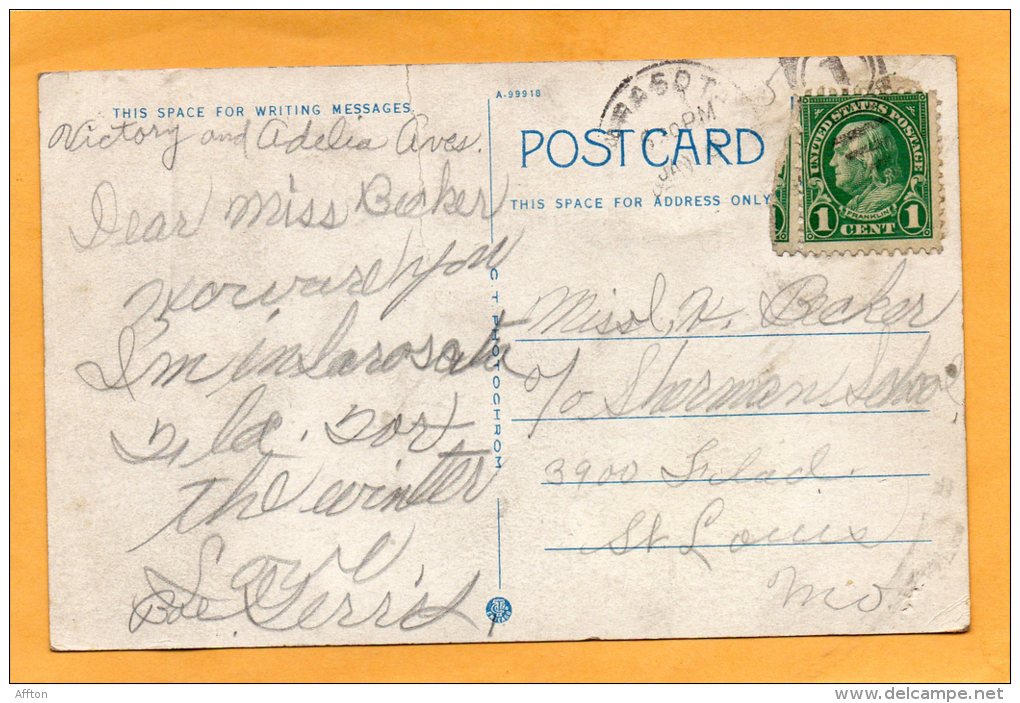 THIS SPACE FOR WRITING MESSAGES
Victory and Adelia Aves.
Dear Miss Becker
How are you
I'm in Sarosata
Fla. For
the winter
Love,
A-99918
POSTCARD
THIS SPACE FOR ADDRESS ONLY
C T PHOTOCHROM
RASOT
PM
JAN
1
UNITED STATES POSTAGE
FRANKLIN
1 CENT 1
Miss L. H. Becker
c/o Sherman School
3900 Flad.
St Louis
Mo
Affton
delcampe.net